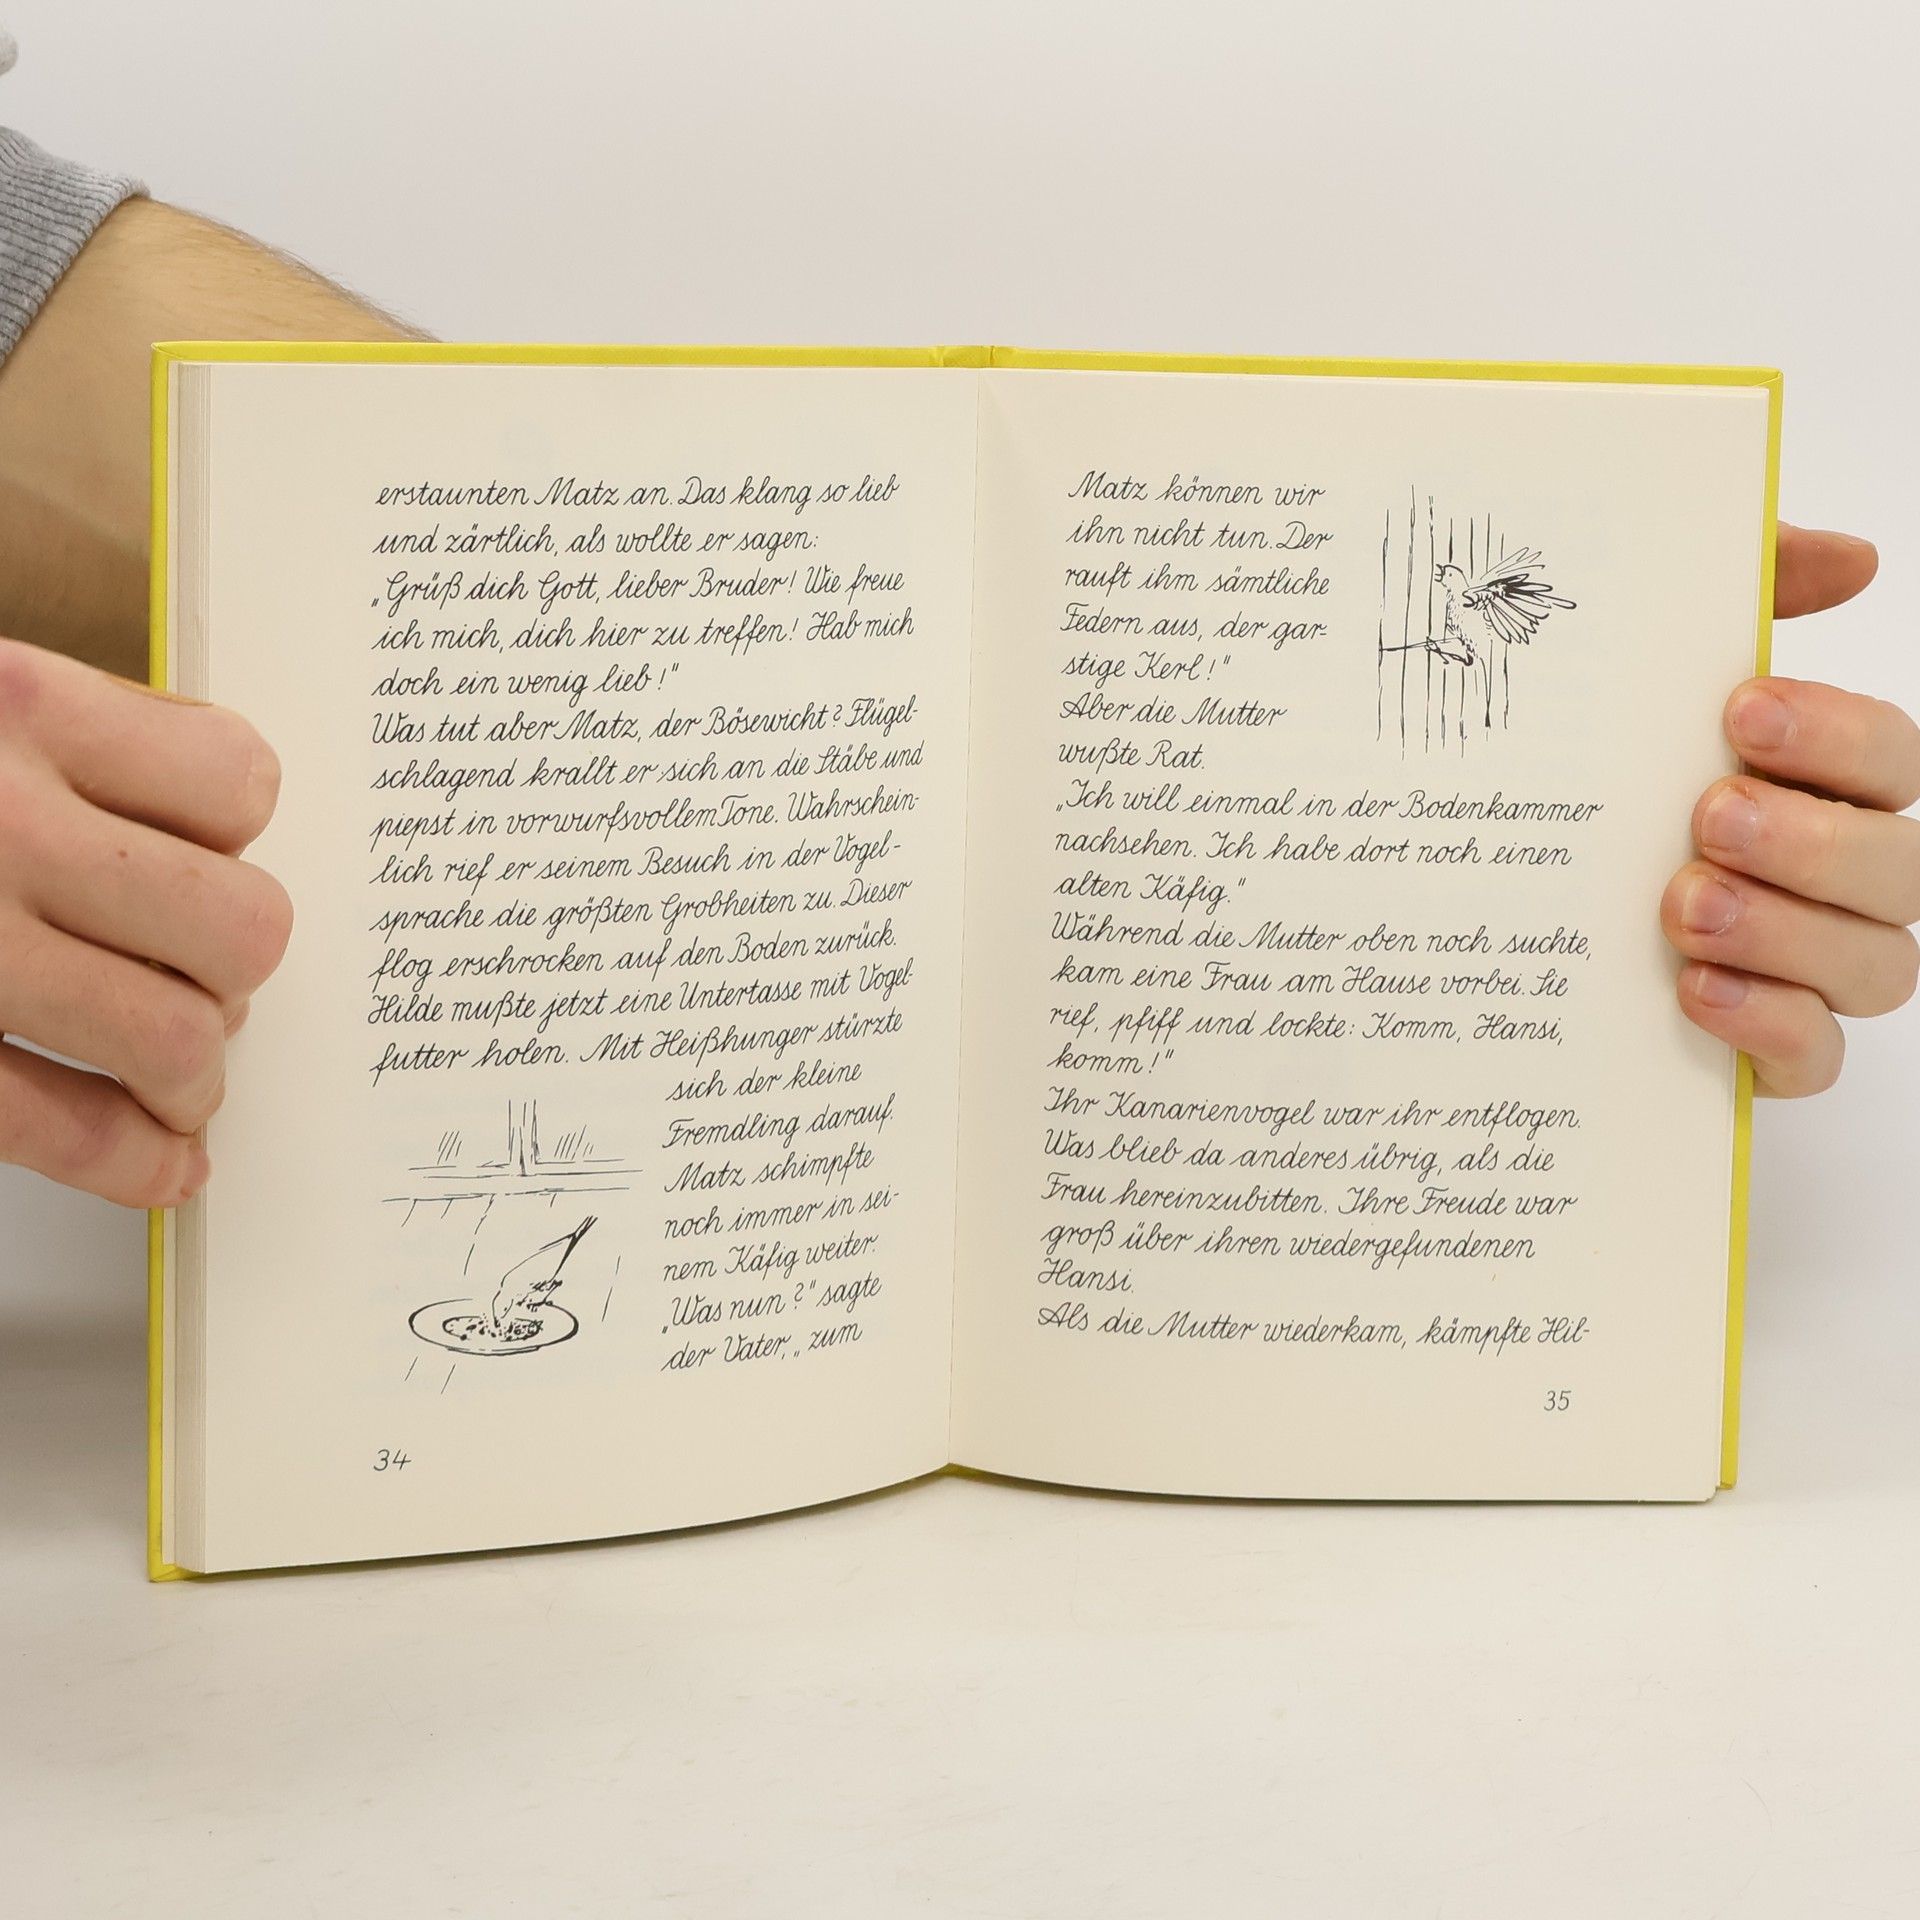 erstaunten Matz an. Das klang so lieb
und zärtlich, als wollte er sagen:
„Grüß dich Gott, lieber Bruder! Wie freue
ich mich, dich hier zu treffen! Hab mich
doch ein wenig lieb!"
Was tut aber Matz, der Bösewicht? Flügel-
schlagend krallt er sich an die Stäbe und
piepst in vorwurfsvollem Tone. Wahrschein-
lich rief er seinem Besuch in der Vogel-
sprache die größten Grobheiten zu. Dieser
flog erschrocken auf den Boden zurück.
Hilde mußte jetzt eine Untertasse mit Vogel-
futter holen. Mit Heißhunger stürzte
sich der kleine
Fremdling darauf.
Matz schimpfte
noch immer in sei-
nem Käfig weiter.
„Was nun?" sagte
der Vater, „zum
34
Matz können wir
ihn nicht tun. Der
rauft ihm sämtliche
Federn aus, der gar-
stige Kerl!"
Aber die Mutter
wußte Rat.
„Ich will einmal in der Bodenkammer
nachsehen. Ich habe dort noch einen
alten Käfig."
Während die Mutter oben noch suchte,
kam eine Frau am Hause vorbei. Sie
rief, pfiff und lockte: Komm, Hansi,
komm!"
Ihr Kanarienvogel war ihr entflogen.
Was blieb da anderes übrig, als die
Frau hereinzubitten. Ihre Freude war
groß über ihren wiedergefundenen
Hansi.
Als die Mutter wiederkam, kämpfte Hil-
35